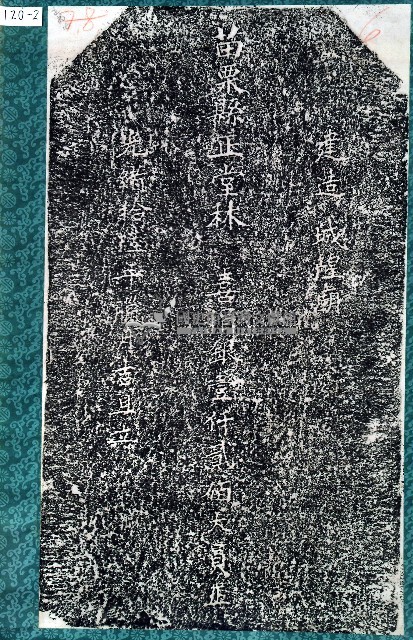 120-2
建造城隍廟
苗栗縣正堂林 喜 銀壹仟貳佰大員正
光緒拾陸年 月吉旦立